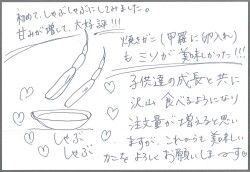 初めて、しゃぶしゃぶにしてみました。
甘みが増して、大好評!!!
焼きガニ(甲羅に卵入れ)
も ミソが 美味しかったー!!!
子供達の成長と共に
沢山 食べるようになり
注文量が増えると思い
ますが、これからも美味しい
かにを よろしく お願いしまーす
しゃぶ
しゃぶ